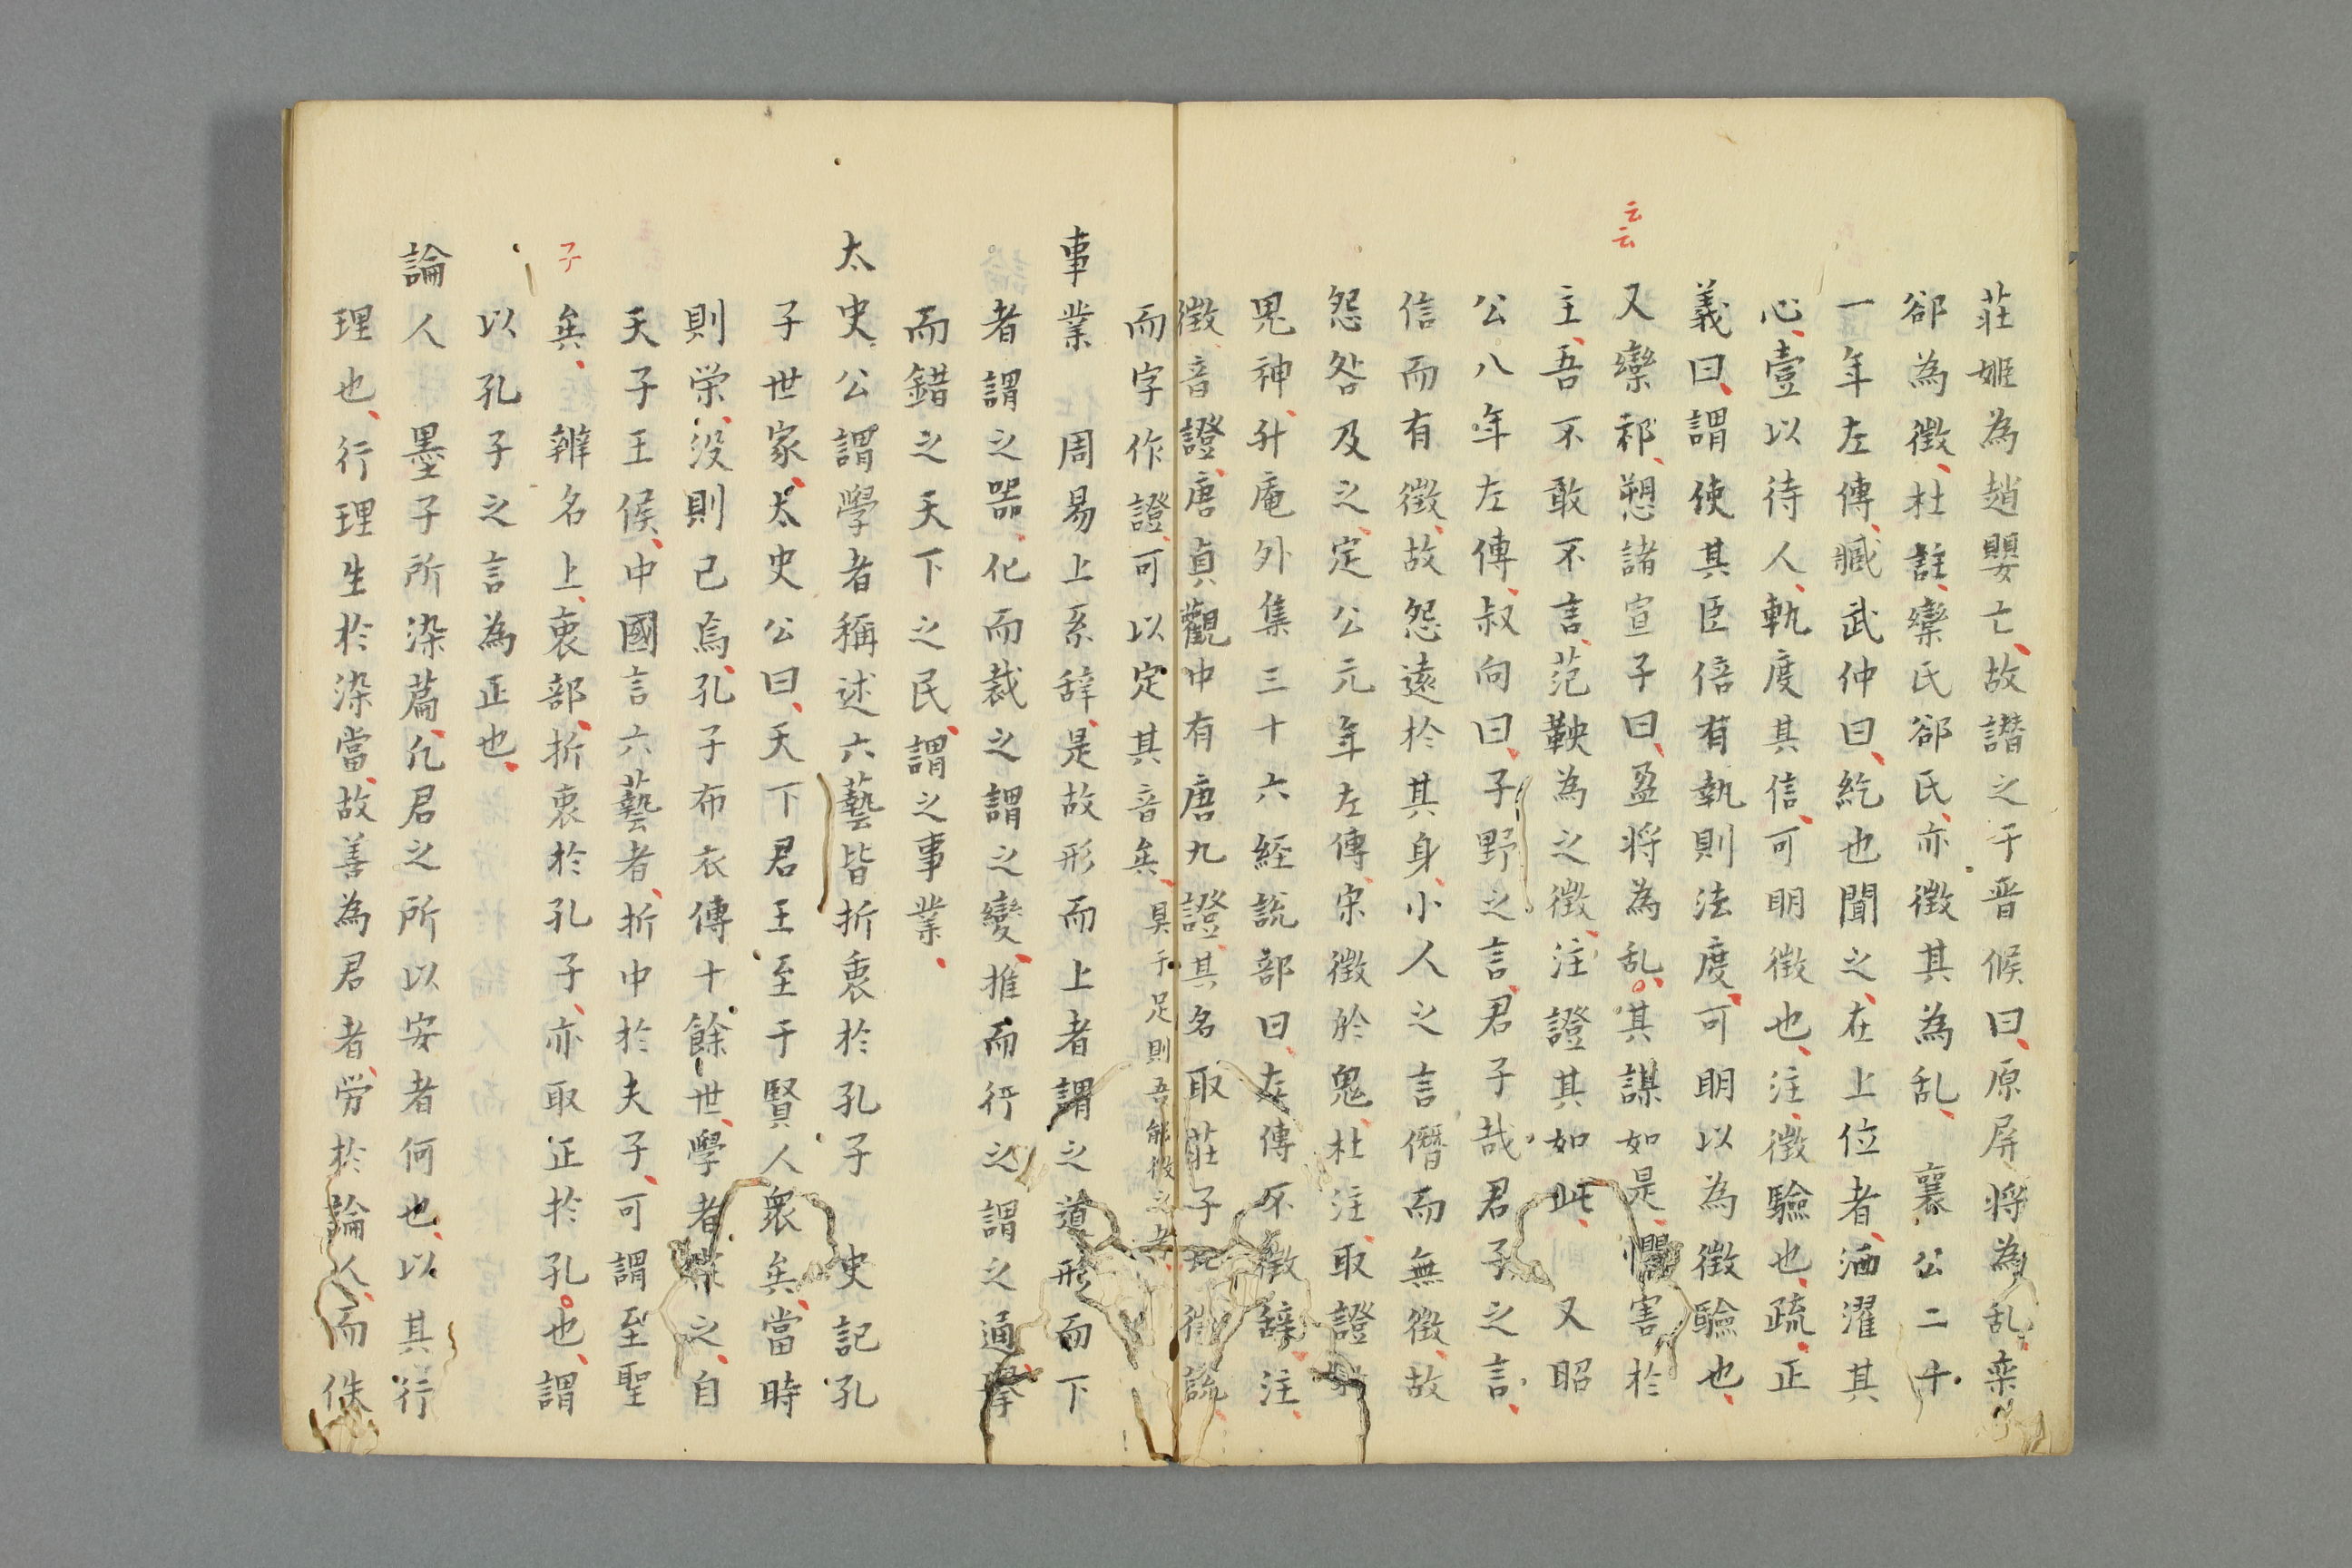 莊姬為趙嬰亡故譖之于晋候曰原屏将為乱栾
郤為徴杜註欒氏郤氏亦徴其為乱 襄公二十
一年左傳臧武仲曰紇也聞之在上位者洒濯其
心壹以待人軌度其信可明徴也注徴驗也疏正
義曰謂使其臣信有執則法度可明以為徴驗也
云云
又欒祁愬諸宣子曰盈将為乱其謀如是懼害於
主吾不敢不言范鞅為之徴注證其如此 又昭
公八年左傳叔向曰子野之言君子哉君子之言
信而有徴故怨遠於其身小人之言僭而無徴故
怨咎及之定公元年左傳宋徴於鬼杜注取證
鬼神升庵外集三十六經説部曰左傳不徴辞注
徴音證唐貞觀中有唐九證其名取莊子 徴説
而字作證可以定其音矣 具于足則吾能徴之矣
事業 周易上系辞是故形而上者謂之道形而下
者謂之器化而裁之謂之變推而行之謂之通擧
而錯之天下之民謂之事業
太史公謂學者稱述六藝皆折衷於孔子 史記孔
子世家太史公曰天下君王至于賢人衆矣當時
則栄没則已焉孔子布衣傳十餘世學者 之自
天子王候中國言六藝者折中於夫子可謂至聖
子
矣 辨名上衷部折衷於孔子亦取正於孔也謂
以孔子之言為正也
論人 墨子所染篇凡君之所以安者何也以其行
理也行理生於染當故善為君者労於論人而佚